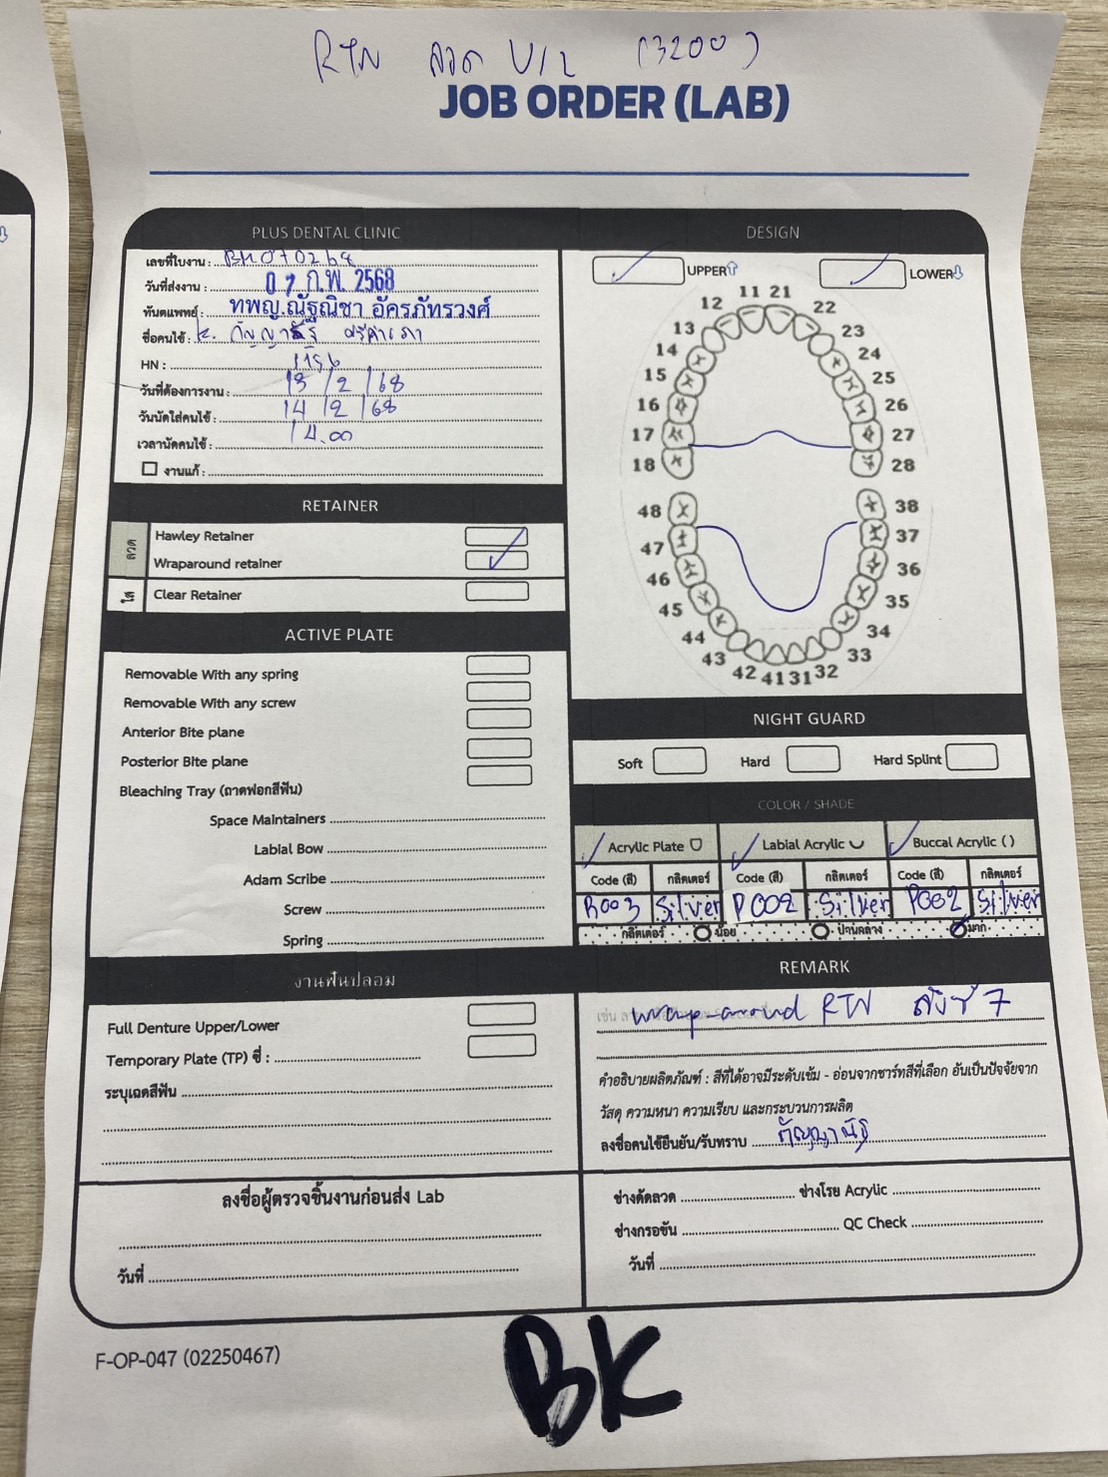 RTN ลวด U/L (3200)
JOB ORDER (LAB)
PLUS DENTAL CLINIC
เลขที่ใบงาน : BK070268
วันที่ส่งงาน : 07 ก.พ. 2568
ทันตแพทย์ : ทพญ.ณัฐณิชา อัครภัทรวงศ์
ชื่อคนไข้ : k. กัญญาณัฐ
HN : 1196
วันที่ต้องการงาน : 13 / 2 / 68
วันนัดใส่คนไข้ : 14 / 2 / 68
เวลานัดคนไข้ : 14.00
งานแก้ :
RETAINER
ลวด
Hawley Retainer
Wraparound retainer
ใส
Clear Retainer
ACTIVE PLATE
Removable With any spring
Removable With any screw
Anterior Bite plane
Posterior Bite plane
Bleaching Tray (ถาดฟอกสีฟัน)
Space Maintainers
Labial Bow
Adam Scribe
Screw
Spring
งานฟันปลอม
Full Denture Upper/Lower
Temporary Plate (TP) ซี่ :
ระบุเฉดสีฟัน
ลงชื่อผู้ตรวจชิ้นงานก่อนส่ง Lab
วันที่
DESIGN
UPPER
LOWER
11 21
12 22
13 23
14 24
15 25
16 26
17 27
18 28
48 38
47 37
46 36
45 35
44 34
43 33
42 41 31 32
NIGHT GUARD
Soft Hard Hard Splint
COLOR / SHADE
Acrylic Plate Labial Acrylic Buccal Acrylic ( )
Code (สี) กลิตเตอร์ Code (สี) กลิตเตอร์ Code (สี) กลิตเตอร์
R003 Silver P002 Silver P002 Silver
กลิตเตอร์ น้อย ปานกลาง มาก
REMARK
wrap-around RTN ถึงซี่ 7
คำอธิบายผลิตภัณฑ์ : สีที่ได้อาจมีระดับเข้ม - อ่อนจากชาร์ทสีที่เลือก อันเป็นปัจจัยจาก
วัสดุ ความหนา ความเรียบ และกระบวนการผลิต
ลงชื่อคนไข้ยืนยัน/รับทราบ กัญญาณัฐ
ช่างดัดลวด ช่างโรย Acrylic
ช่างกรอขัน QC Check
วันที่
F-OP-047 (02250467)
BK